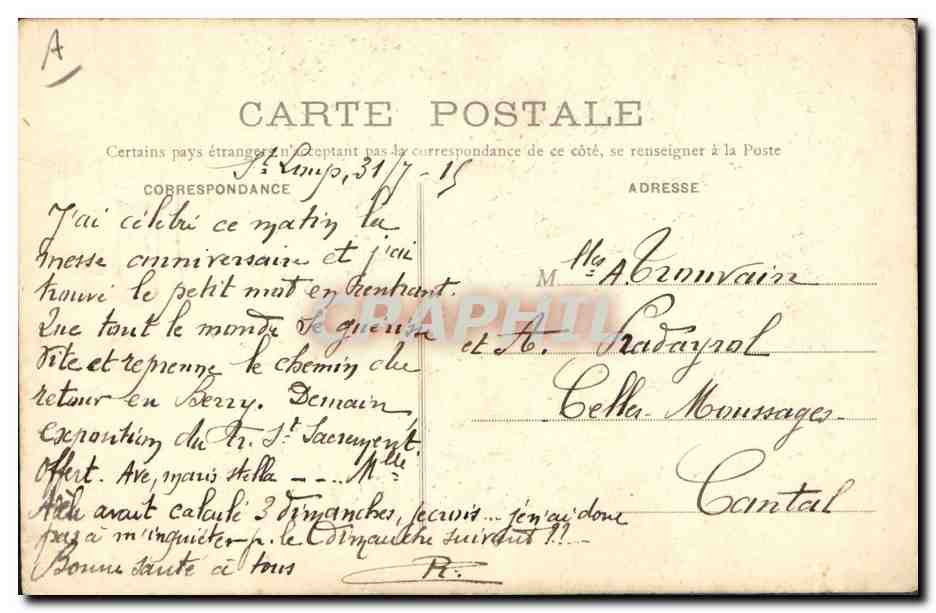 A
CARTE POSTALE
Certains pays étrangers n'acceptant pas la correspondance de ce côté, se renseigner à la Poste
St Loup, 31/7-15
CORRESPONDANCE
J'ai célébré ce matin la
messe anniversaire et j'ai
trouvé le petit mot en rentrant.
Que tout le monde se guérisse
vite et reprenne le chemin du
retour en Berry. Demain
exposition du Tr. St Sacrement.
Offert. Ave, maris stella -- .. Mlle
avait calculé 3 dimanches, je crois... je n'ai donc
pas à m'inquiéter p. le dimanche suivant !! --
Bonne santé à tous
ADRESSE
M lles A. Trouvain
et A. Pradayrol
Celles-Moussages-
Cantal
CRAPHIL